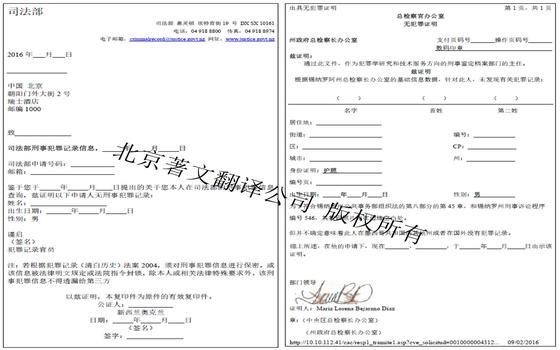 司法部
司法部 惠灵顿 埃特肯街 19 号 DX SX 10161
电话: 04 918 8800 传真: 04 918 8974
电子邮箱: criminalrecord@justice.govt.nz 网址: www.justice.govt.nz
2016 年___月___日
中国 北京
朝阳门外大街 2 号
瑞士酒店
邮编 1000
致
司法部刑事犯罪记录信息, ___年___月___日
司法部申请号码:
邮箱:
鉴于您于___年___月___日提出的关于您本人在司法部的刑事犯罪信息
查询, 兹证明以下申请人无刑事犯罪记录:
姓名:
出生日期: ___年___月___日
性别: 男
谨启
(签名)
犯罪记录官员
注: 若根据犯罪记录(清白历史)法案 2004, 须对刑事犯罪信息进行保密, 或
该信息被法律明文规定或法院指令封锁, 除本人或相关法律特殊要求外, 该刑
事犯罪信息不得透漏给第三方
以兹证明, 本复印件为原件的有效复印件。
公证人:
新西兰奥克兰
日期: ___年___月___日
(签名)
签字:
出具无犯罪证明 第 1 页, 共 1 页
总检察官办公室
无犯罪证明
州政府总检察长办公室 支付页码号 操作页码号
数码印章
兹证明:
通过此文件, 作为犯罪学研究和技术服务方向的刑事鉴定档案部门的主任。
兹证明
根据锡纳罗阿州总检察长办公室的基础信息数据, 针对此人, 未发现有关犯罪记录:
( ) ( ) ( )
名字 首姓 第二姓
居住地:
街道: 编号:
区: CP:
城市: 州:
身份证明: 护照
编号页:
出生日期: ___年___月___日 性别: 男
公共事务部组织法的第八部分的第 45 章, 和锡纳罗州刑事诉讼程序
编号 546,
但并不确定意味着此人在墨西哥共和国其他州或者在国外没有犯罪记录。
综上所述, 在他的申请下, 现在 , 于___年___月___日出示该
证明。
部门领导
证明人: Maria Lorena Bejarano Diaz
章: (中央区总检察长办公室)
(州政府总检察长办公室)
http://10.10.112.41/cac/resp1_tramite1.asp?cve_solicitud=0010000004312... 09/02/2016
北京著文翻译公司 版权所有